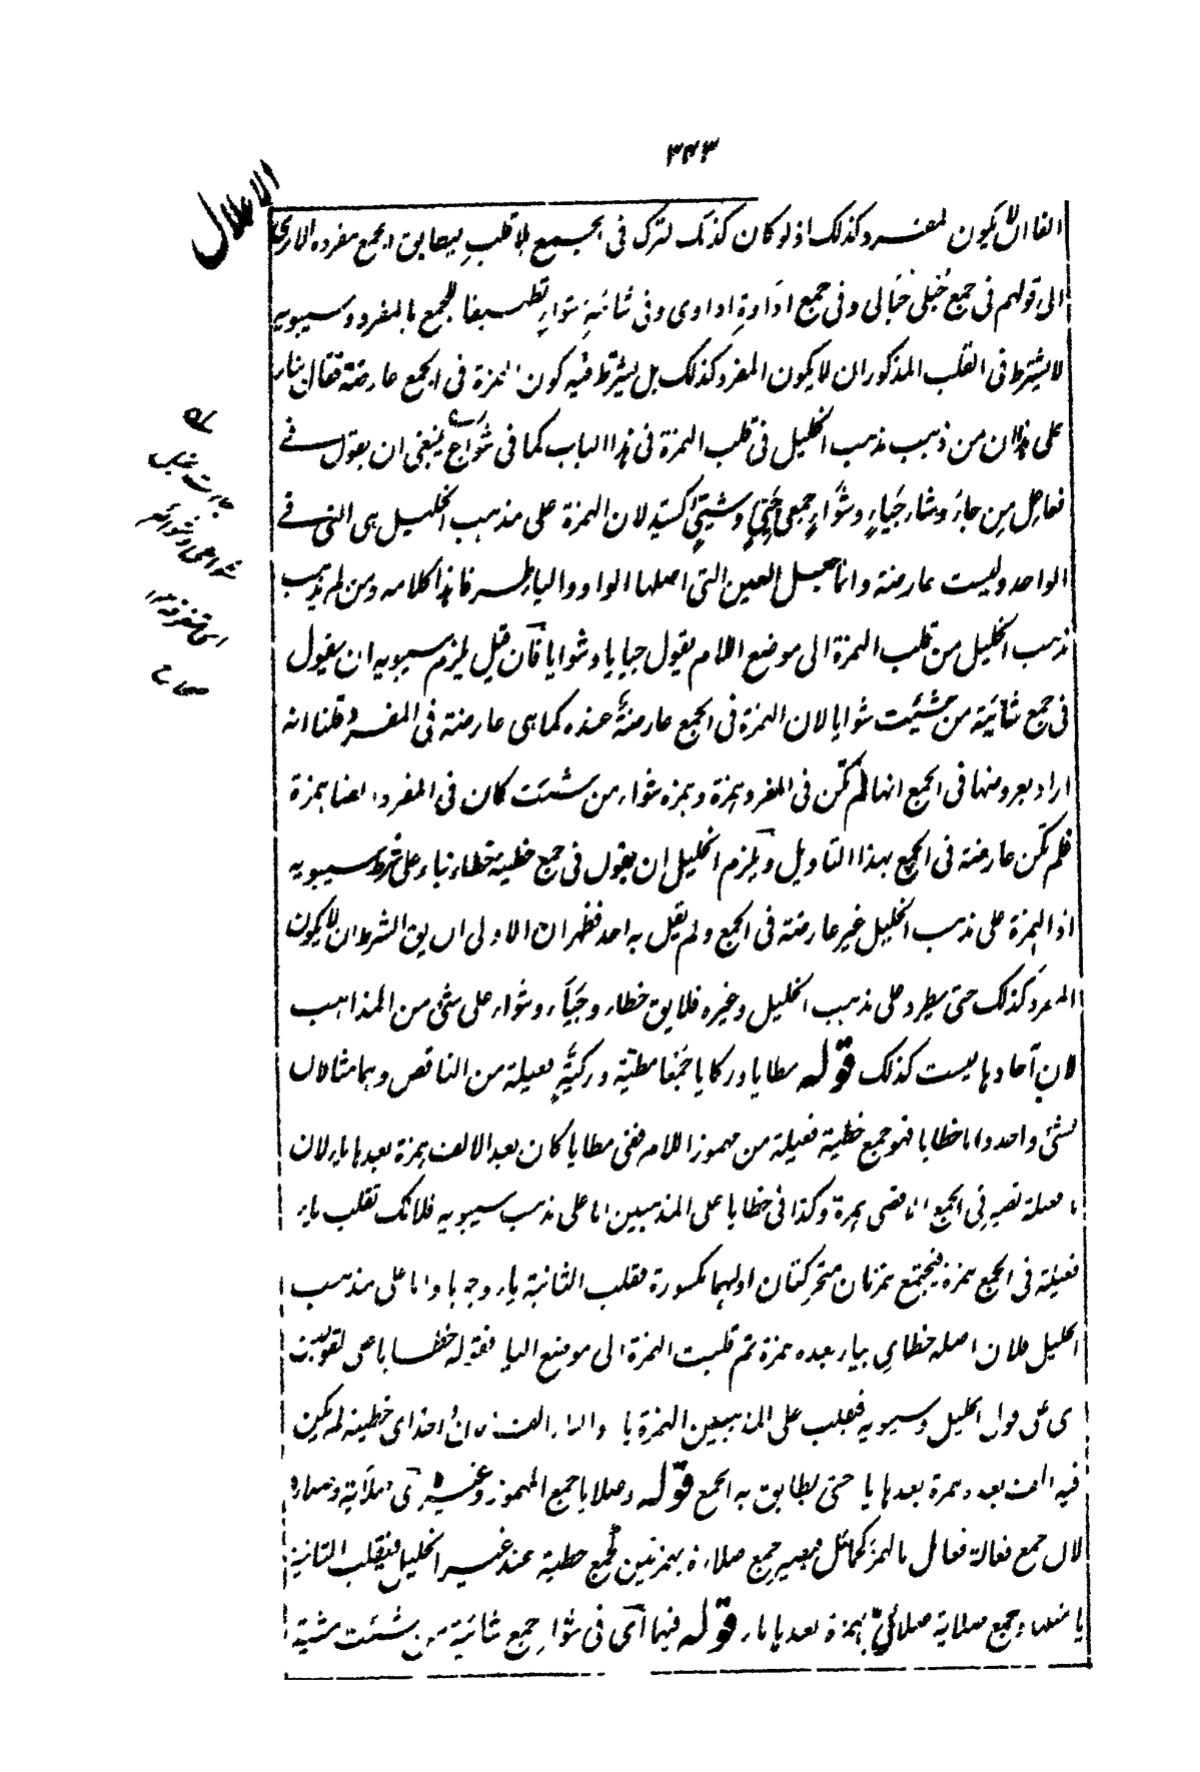 ۳۴۳
الاعلال
الفا ان لا يكون المفرد كذلك اذ لو كان كذلك لترك فى الجمع بلا قلب ليطابق الجمع مفرده الا ترى
الى قولهم فى جمع حُبلى حَبالى وفى جمع اداوة اداوى وفى شائية شواءٍ تطبيقا للجمع بالمفرد وسيبويه
لا يشترط فى القلب المذكور ان لا يكون المفرد كذلك بل يشترط فيه كون الهمزة فى الجمع عارضة فقال بناء
على هذا ان من ذهب مذهب الخليل فى قلب الهمزة فى هذا الباب كما فى شواع ينبغى ان يقول فى
فعاعل من جاء وشاء جَياءٍ وشَواءٍ جمعى وشيئ كسيّد لان الهمزة على مذهب الخليل هى التى فى
الواحد وليست عارضة وانما جعل العين التى اصلها الواو والياء طرفا هذا كلامه ومن لم يذهب
مذهب الخليل من قلب الهمزة الى موضع اللام يقول جيايا وشوايا فان قيل يلزم سيبويه ان يقول
فى جمع شائية من شئيت شوايا لان الهمزة فى الجمع عارضة عنده كما هى عارضة فى المفرد قلنا انه
اراد بعروضها فى الجمع انها لم تكن فى المفرد همزة وهمزه شواء من شئت كان فى المفرد ايضا همزة
فلم تكن عارضة فى الجمع بهذا التاويل ويلزم الخليل ان يقول فى جمع خطيئة خطاء بناء على شرط سيبويه
اذ الهمزة على مذهب الخليل غير عارضة فى الجمع ولم يقل به احد فظهر ان الاولى ان يق الشرط ان لا يكون
المفرد كذلك حتى يطرد على مذهب الخليل وغيره فلا يق خطاء وجَياء وشواء على شئ من المذاهب
لان آحادها ليست كذلك قوله مطايا وركايا جمعا مطيّة وركيّةٍ فعيلة من الناقص وهما مثالان
لشئ واحد واما خطايا فهو جمع خطيئة فعيلة من مهموز اللام ففى مطايا كان بعد الالف همزة بعدها ياء لان
ياء فعيلة تصير فى الجمع الاقصى همزة وكذا فى خطايا على المذهبين اما على مذهب سيبويه فلانك تقلب ياء
فعيلة فى الجمع همزة فيجتمع همزتان متحركتان اولهما مكسورة فقلب الثانية ياء وجوبا واما على مذهب
الخليل فلان اصله خطايئ بياء بعده همزة ثم قلبت الهمزة الى موضع الياء فقوله خطايا على القولين
اى على قول الخليل وسيبويه فقلب على المذهبين الهمزة يا والياء الفا لان واحده اى خطيئة لم يكن
فيه الف بعده همزة بعدها يا حتى يطابق به الجمع قوله وصلايا جمع المهموز وغيره اى صلاية وصلاءة
لان جمع فعالة فعائل بالهمز كحمائل فيصير جمع صلاءة بهمزتين كجمع خطيئة عند غير الخليل فيقلب الثانية
يا وجمع صلاية صلائى بهمزة بعدها ياء قوله فيهما اى فى شواءٍ جمع شائية من شئت مشية